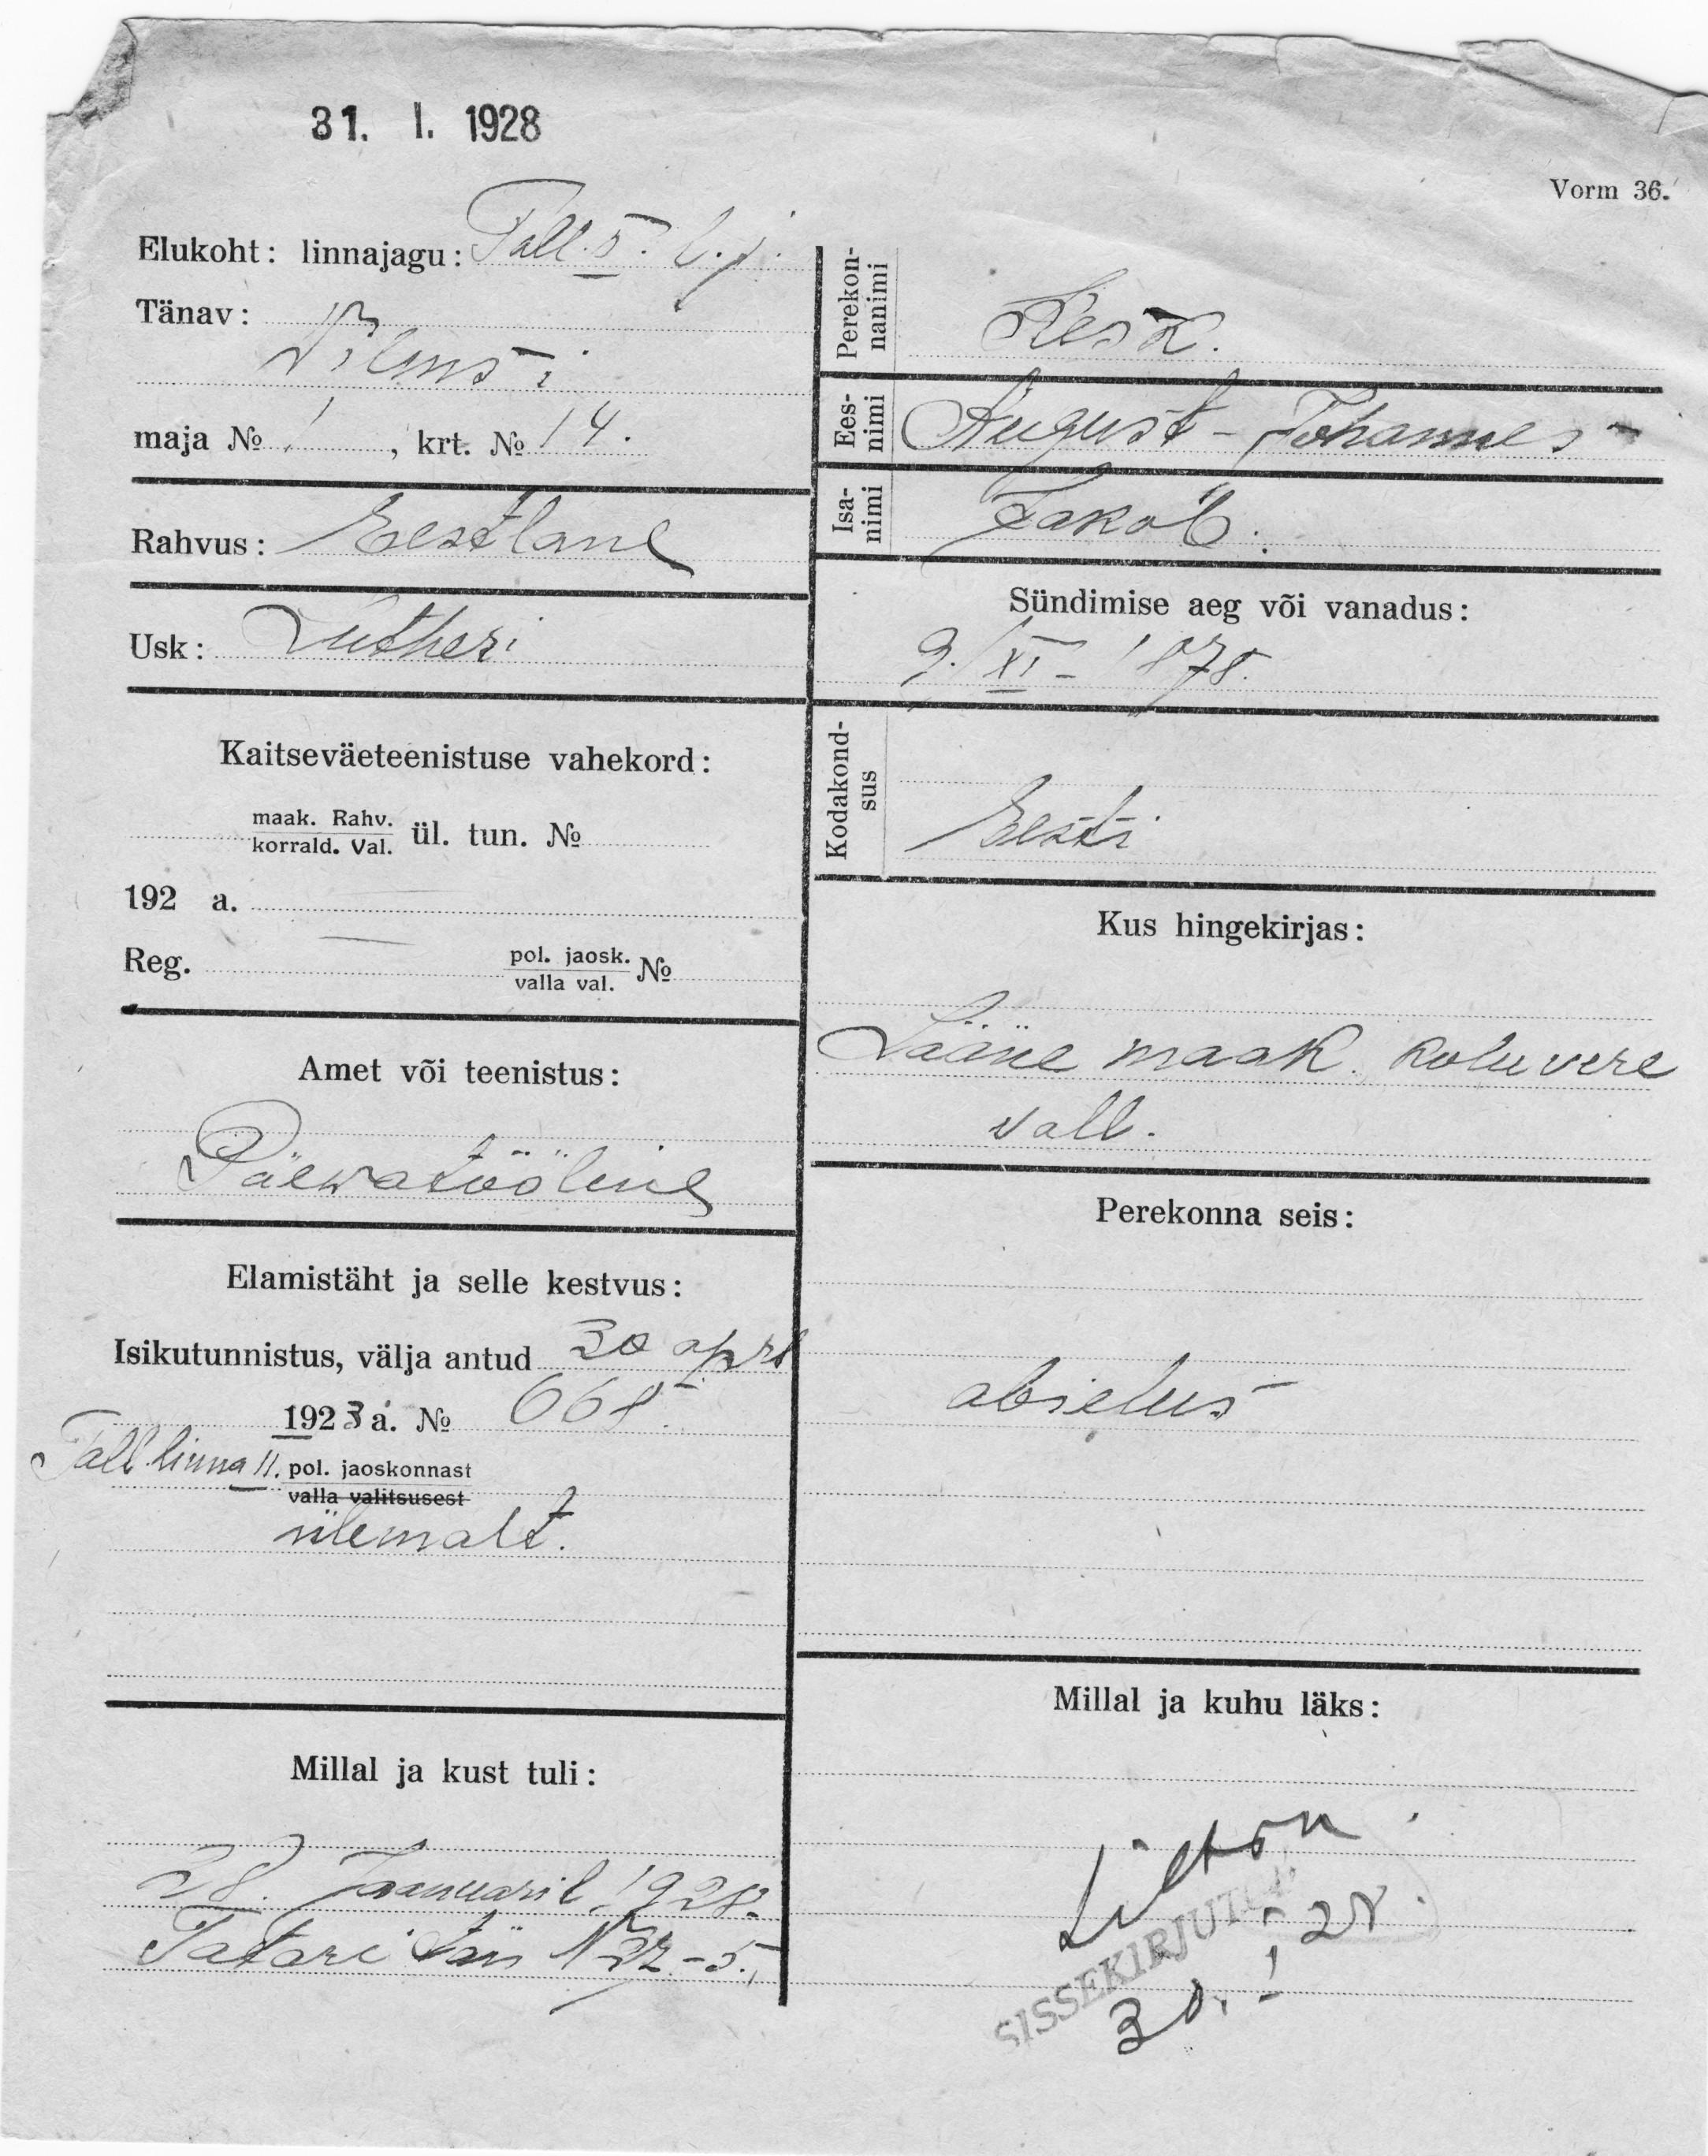 31. I. 1928
Vorm 36.
Elukoht: linnajagu: Tall. 5. l. j.
Tänav:
Vilmsi
maja № 1, krt. № 14.
Rahvus: Eestlane
Usk: Lutheri
Kaitseväeteenistuse vahekord:
maak. Rahv.
korrald. Val. ül. tun. №
192 a.
Reg. pol. jaosk.
valla val. №
Amet või teenistus:
Päewatööline
Elamistäht ja selle kestvus:
Isikutunnistus, välja antud 30 apr
1923 a. № 668
Tall. linna II. pol. jaoskonnast
valla valitsusest
ülemalt.
Millal ja kust tuli:
28. Jaanuaril 1928.
Tatari tän N 27-5.
Perekon-
nanimi
Kesk.
Ees-
nimi August-Johannes-
Isa-
nimi Jakob.
Sündimise aeg või vanadus:
9./XI-1878.
Kodakond-
sus
Eesti
Kus hingekirjas:
Lääne maak. Koluvere
vall.
Perekonna seis:
abielus
Millal ja kuhu läks:
SISSEKIRJUT
30. I 28.